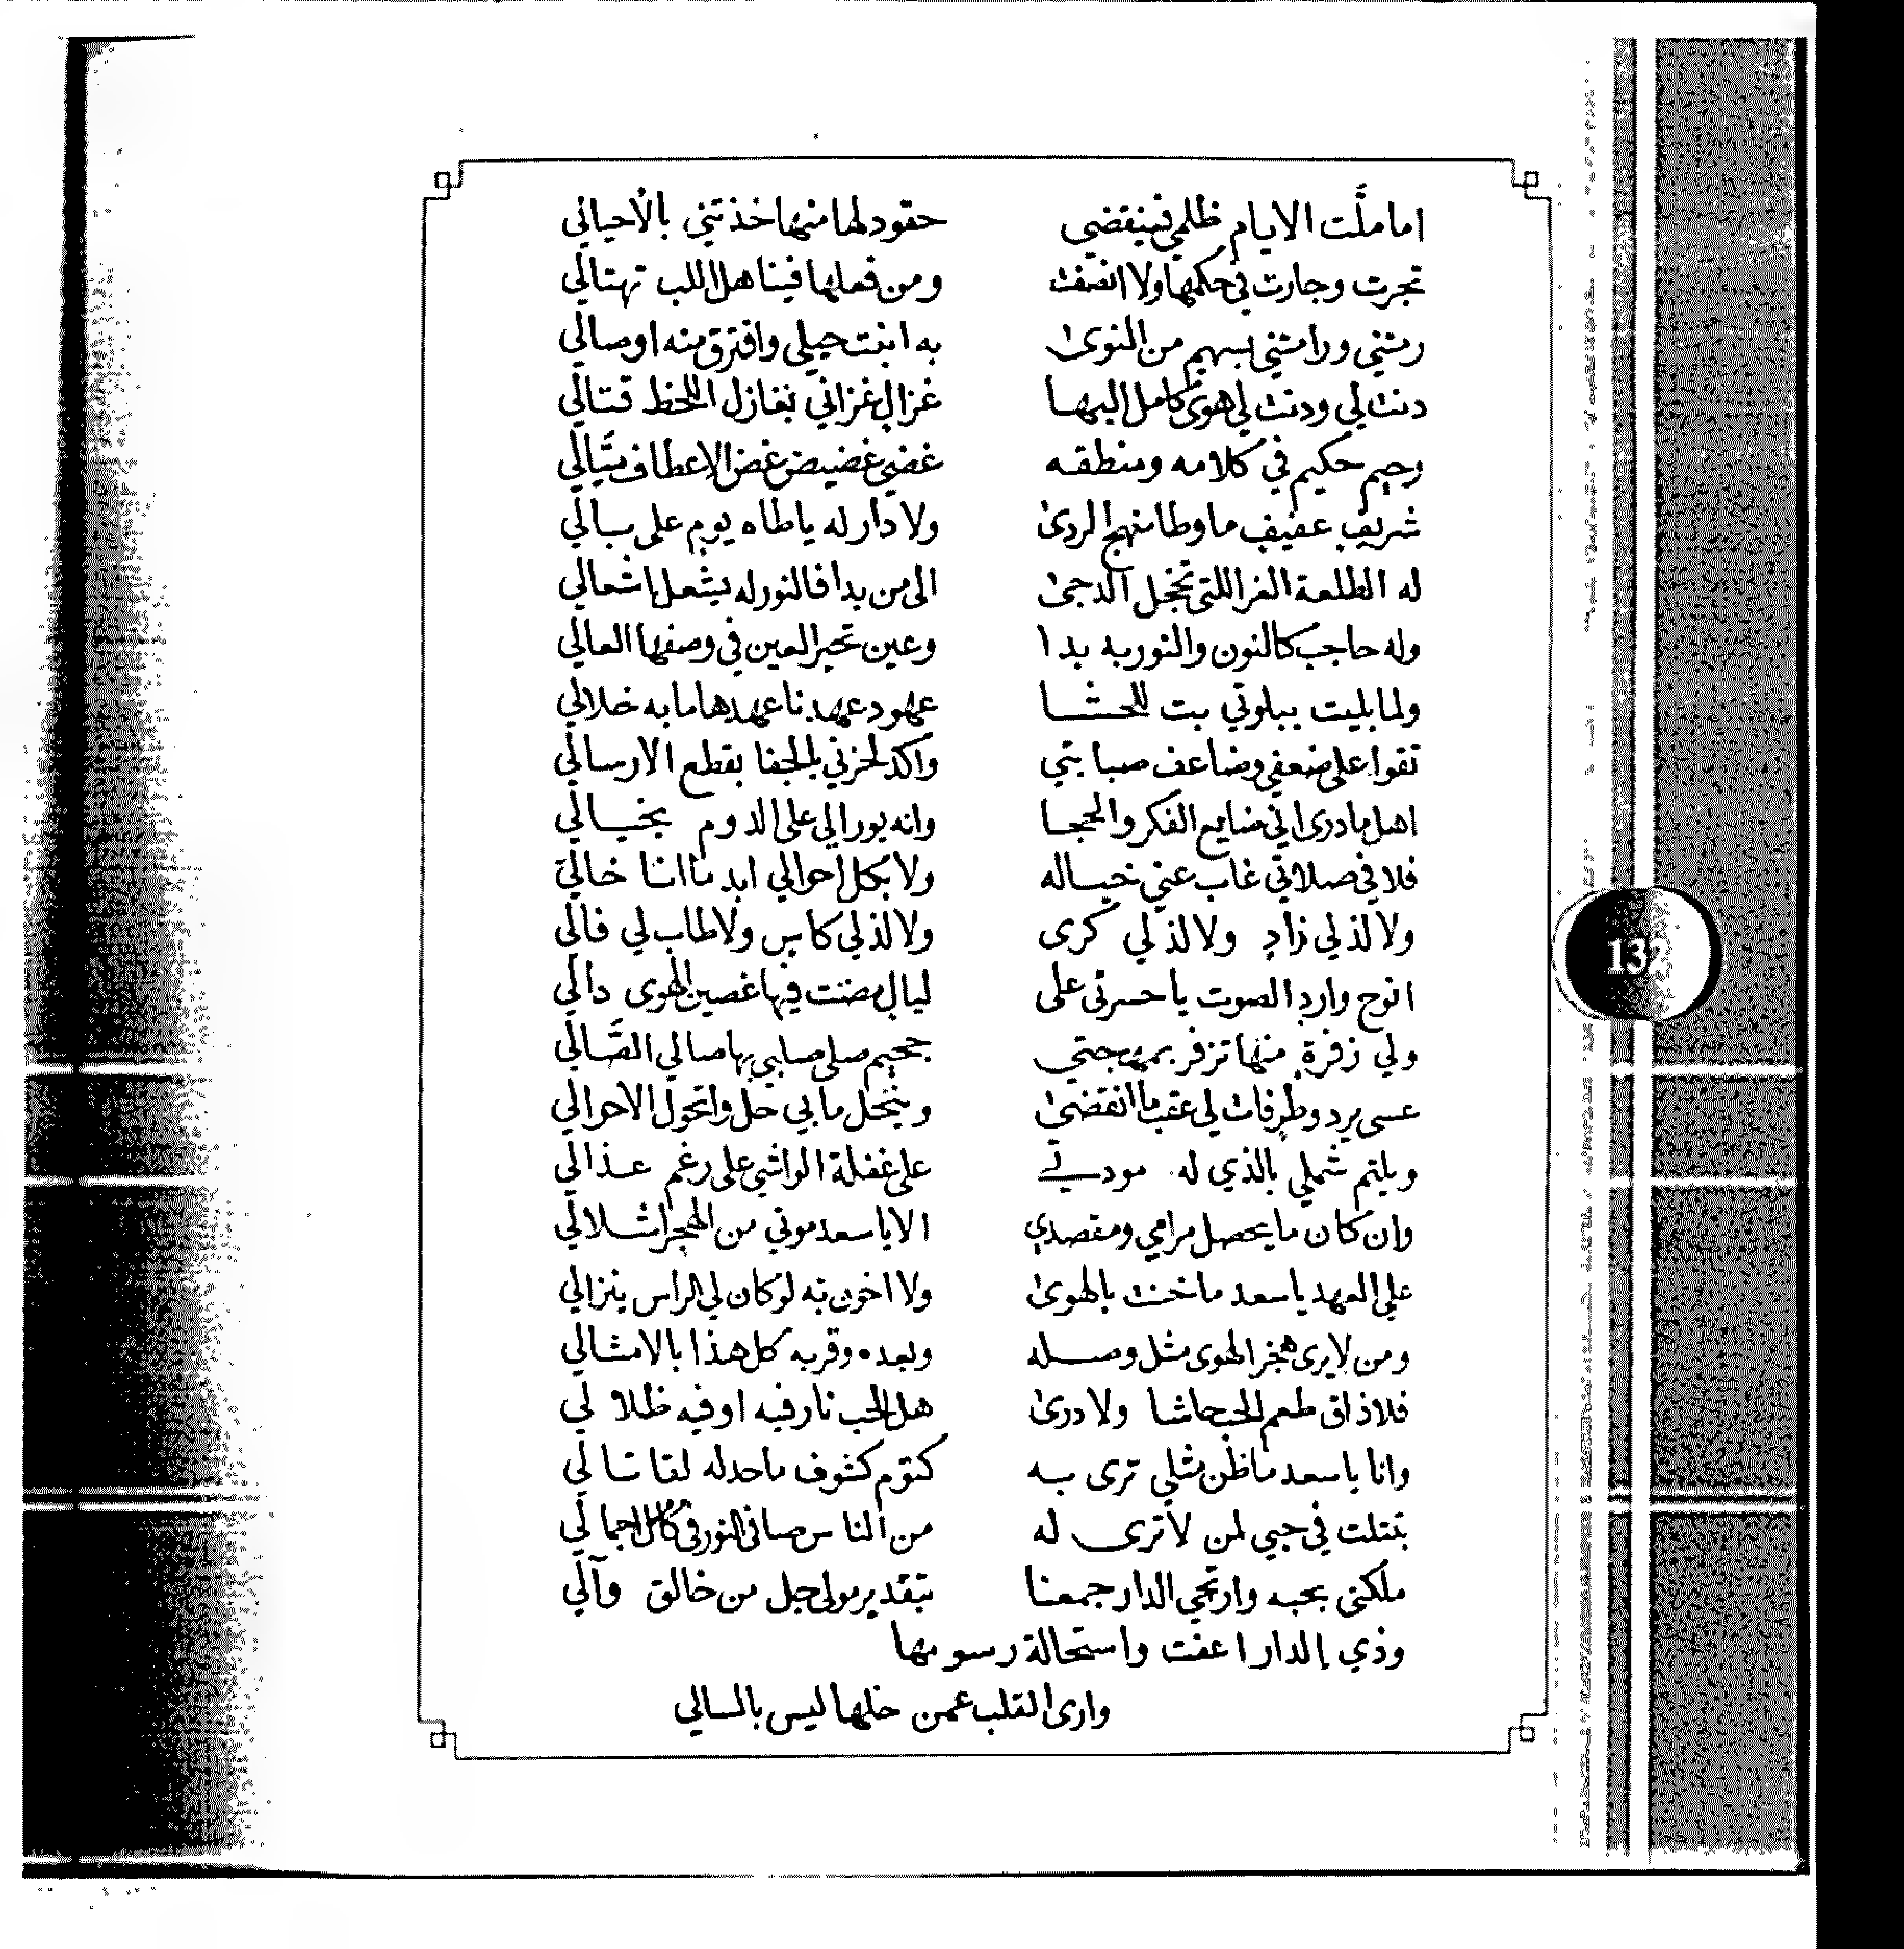 اما ملَّت الايام ظلمي فينقضي حقود لها منها خذتني بالأحيالي
تجرت وجارت في حكمها ولا انصفت ومن فعلها فينا هل اللب تهتالي
رمتني ورامتني بسهم من النوى به انبت حيلي وافترق منه اوصالي
دنت لي ودنت لي هوى كامل البها غزال غزاني بغازل اللحظ قتالي
رحيم حكيم في كلامه ومنطقه غضي غضيض غض الاعطاف ميَّالي
شريف عفيف ما وطا منهج الردى ولا دار له ياطاه يوم على بالي
له الطلعة الغرا اللتي تخجل الدجى الى من بدا فالنور له يشعل اشعالي
وله حاجب كالنون والنور به بدا وعين تحير العين في وصفها العالي
ولما بليت ببلوتي بت للحشا عهود عهدنا عهدها ما به خلالي
تقوا على ضعفي وضاعف صبابتي واكد لحزني بالجفا بقطع الارسالي
اهل ما درى اني ضايع الفكر والحجا وانه يورالي على الدوم بخيالي
فلا في صلاتي غاب عني خياله ولا بكل احوالي ابد ما انا خالي
ولا لذ لي زاد ولا لذ لي كرى ولا لذ لي كاس ولا طاب لي فالي
انوح وارد الصوت يا حسرتي على ليال مضت فيها غصين الهوى دالي
ولي زفرة منها تزفر بمهجتي جحيم صلى صلبي بها صالي الصَّالي
عسى يرد وطرفات لي عقب ما انقضى وينحل ما بي حل واتحول الاحوالي
ويلتم شملي بالذي له مودتي على غفلة الواشي على رغم عذالي
وان كان ما يحصل مرامي ومقصدي الا يا سعد موتي من الهجر اشلالي
على العهد يا سعد ما خنت بالهوى ولا اخون به لو كان لي الراس ينزالي
ومن لا يرى هجر الهوى مثل وصله وبعده وقربه كل هذا بالامثالي
فلا ذاق طعم الحب حاشا ولا درى هل الحب نار فيه او فيه ظلالي
وانا يا سعد ما ظن مثلي ترى به كتوم كشوف ماحد له لقا تالي
بتلت في حبي لمن لا ترى له من الناس صافي النور في كامل اجمالي
ملكني بحبه وارتجي الدار جمعنا بتقدير مولى جل من خالق وآلي
وذي الدار اعفت واستحالة رسومها
وارى القلب عمن خلها ليس بالسالي
132